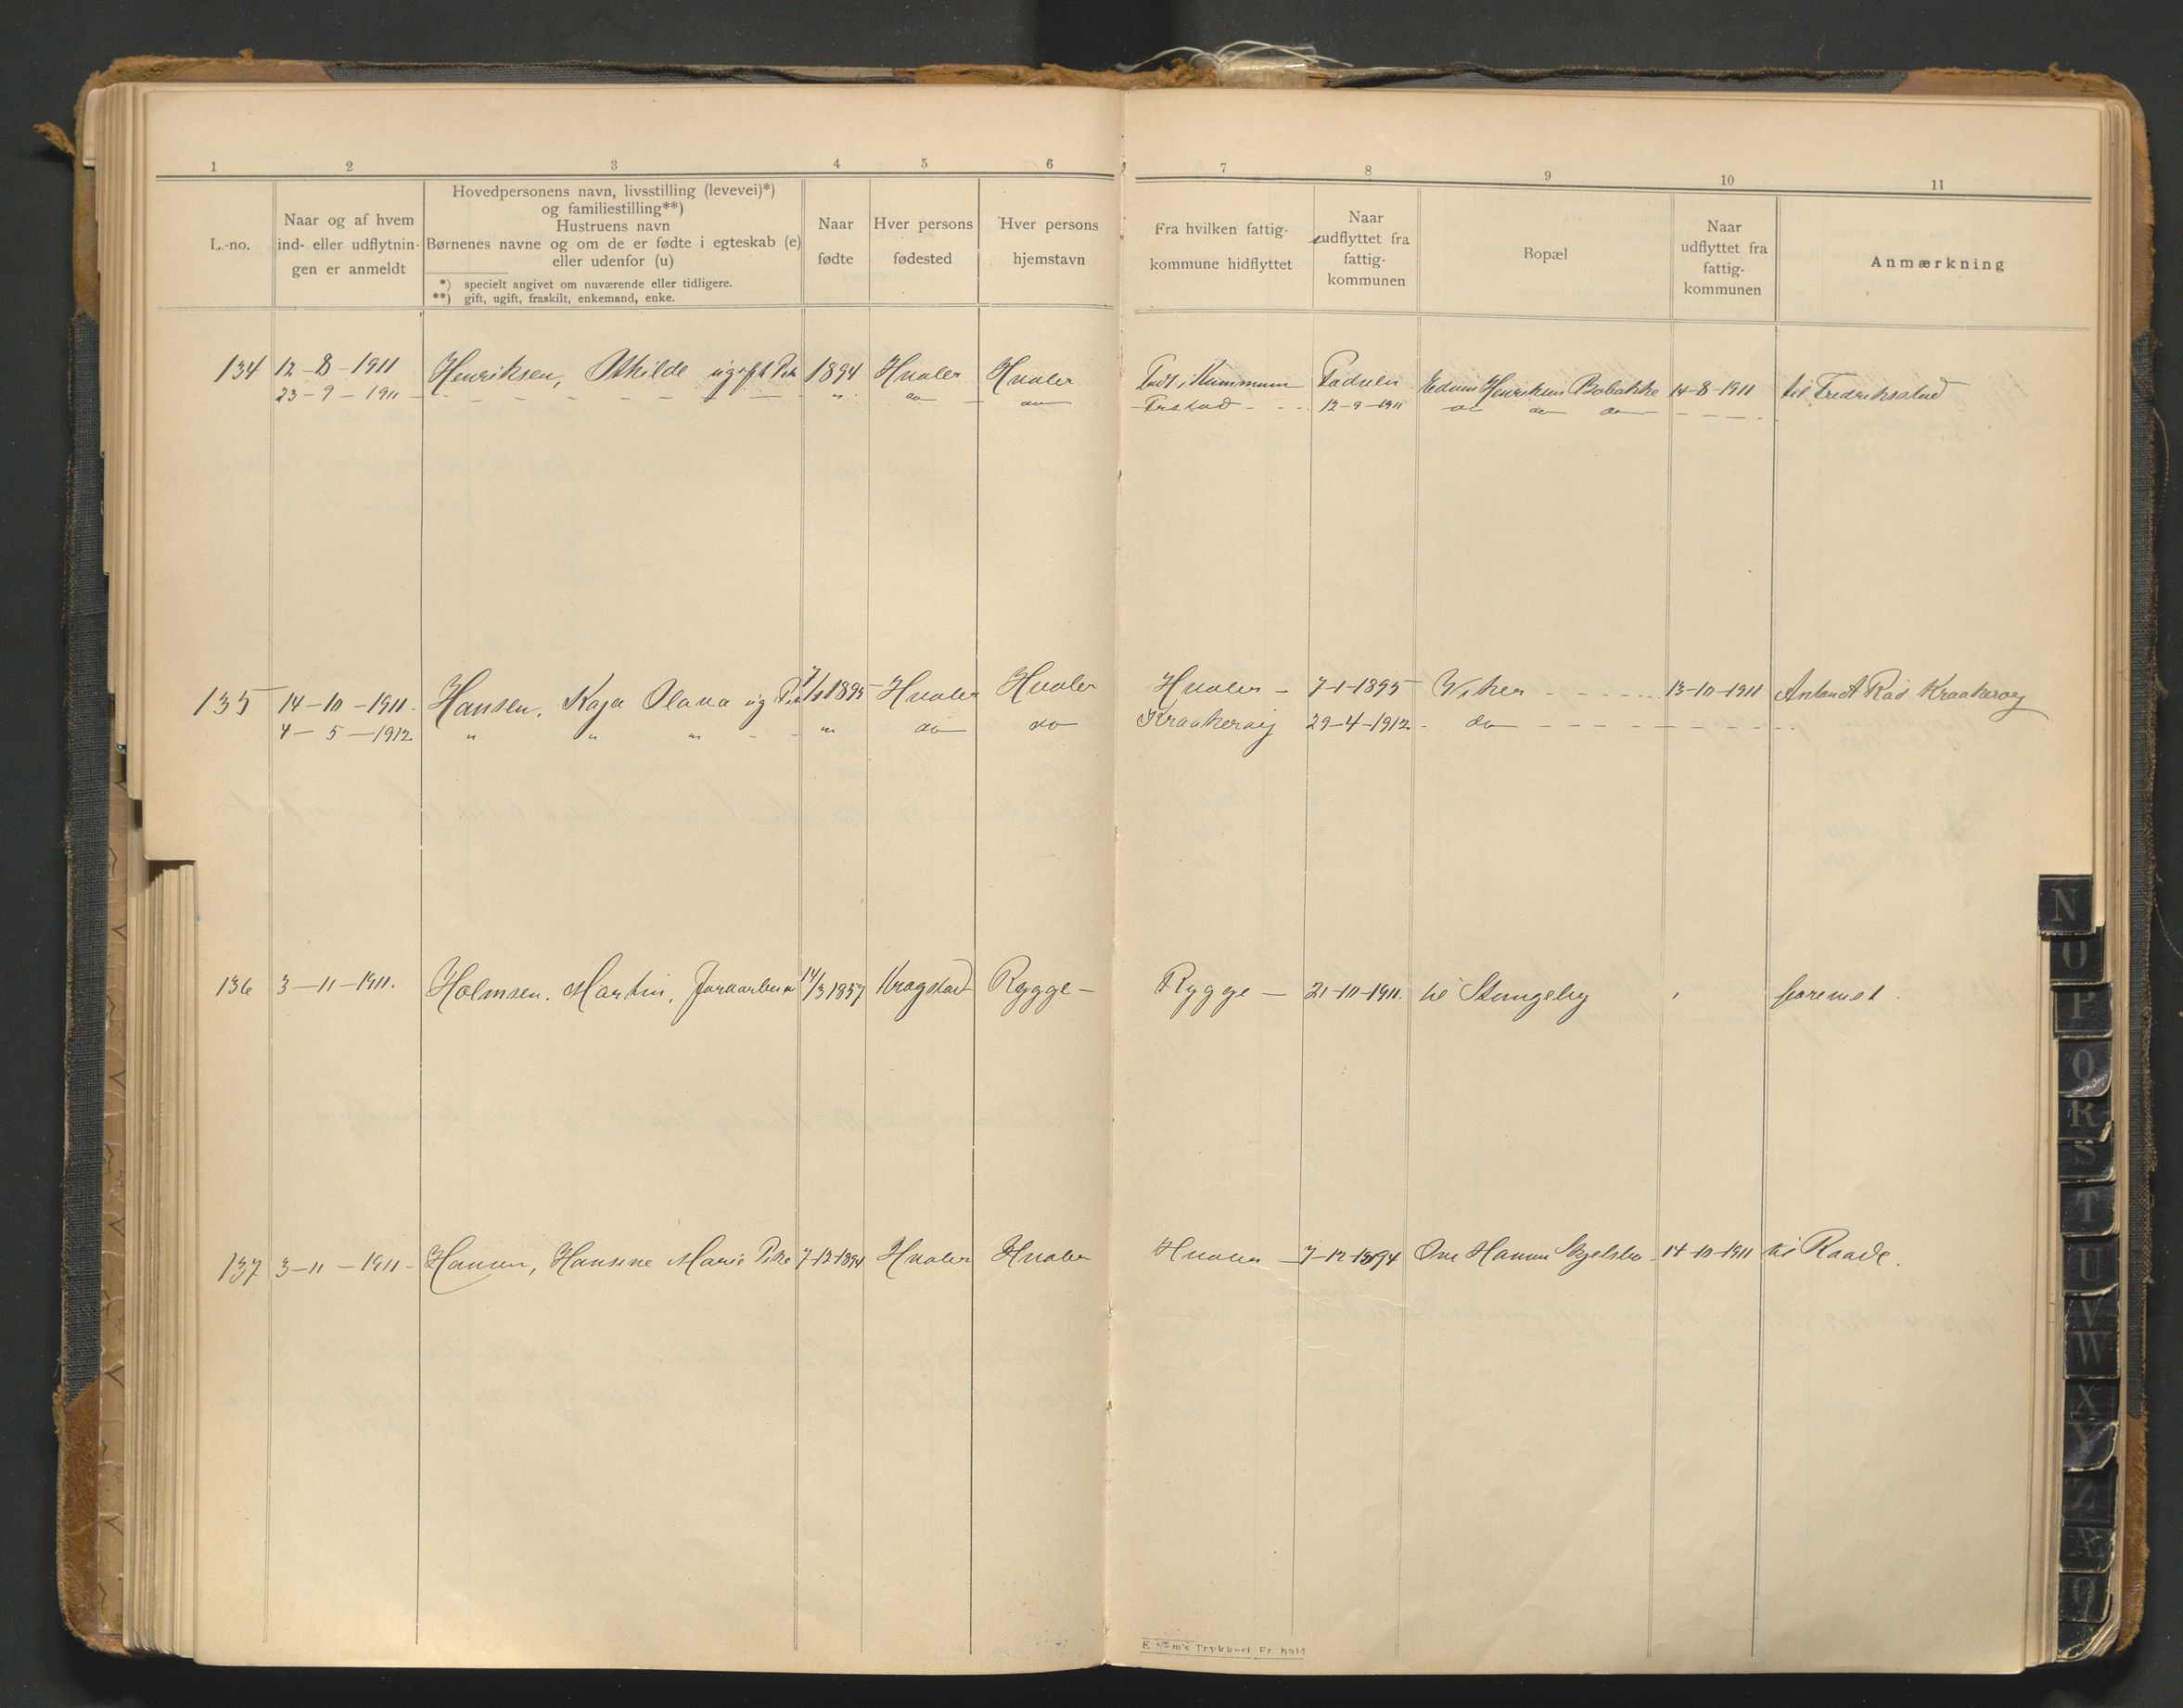 1 2 3 4 5 6 7 8 9 10 11
L.-no.
Naar og af hvem
ind- eller udflytnin-
gen er anmeldt
Hovedpersonens navn, livsstilling (levevei)*)
og familiestilling**)
Hustruens navn
Børnenes navne og om de er fødte i egteskab (e)
eller udenfor (u)
*) specielt angivet om nuværende eller tidligere.
**) gift, ugift, fraskilt, enkemand, enke.
Naar
fødte
Hver persons
fødested
Hver persons
hjemstavn
Fra hvilken fattig-
kommune hidflyttet
Naar
udflyttet fra
fattig-
kommunen
Bopæl
Naar
udflyttet fra
fattig-
kommunen
Anmærkning
134 12-8-1911 Henriksen, Othilde ugift 1894 Hvaler Hvaler Født i Kummunen Fødselen Edvin Henriksen Bobakke 14-8-1911 til Fredriksstad
23-9-1911 - - - - - - - - " do do Frstad - - 12-9-1911 do do do - - - -
135 14-10-1911 Hansen, Kaja Olava ug 7/1 1895 Hvaler Hvaler Hvaler - 7-1-1895 Viker - - - - 13-10-1911 Kraakerøy
4-5-1912 " " " - - " do do Kraakerøy 29-4-1912 - do - - - - - - - -
136 3-11-1911. Holmsen. Martin, 14/3 1857 Kragstad Rygge - Rygge - 21-10-1911. til Stangeby
137 3-11-1911 - Hansen, Hansine Marie Pike 7-12-1894 Hvaler Hvaler Hvaler - 7-12-1894 Hansen 14-10-1911 til Raade.
N
O
P
Q
R
S
T
U
V
W
X
Y
Z